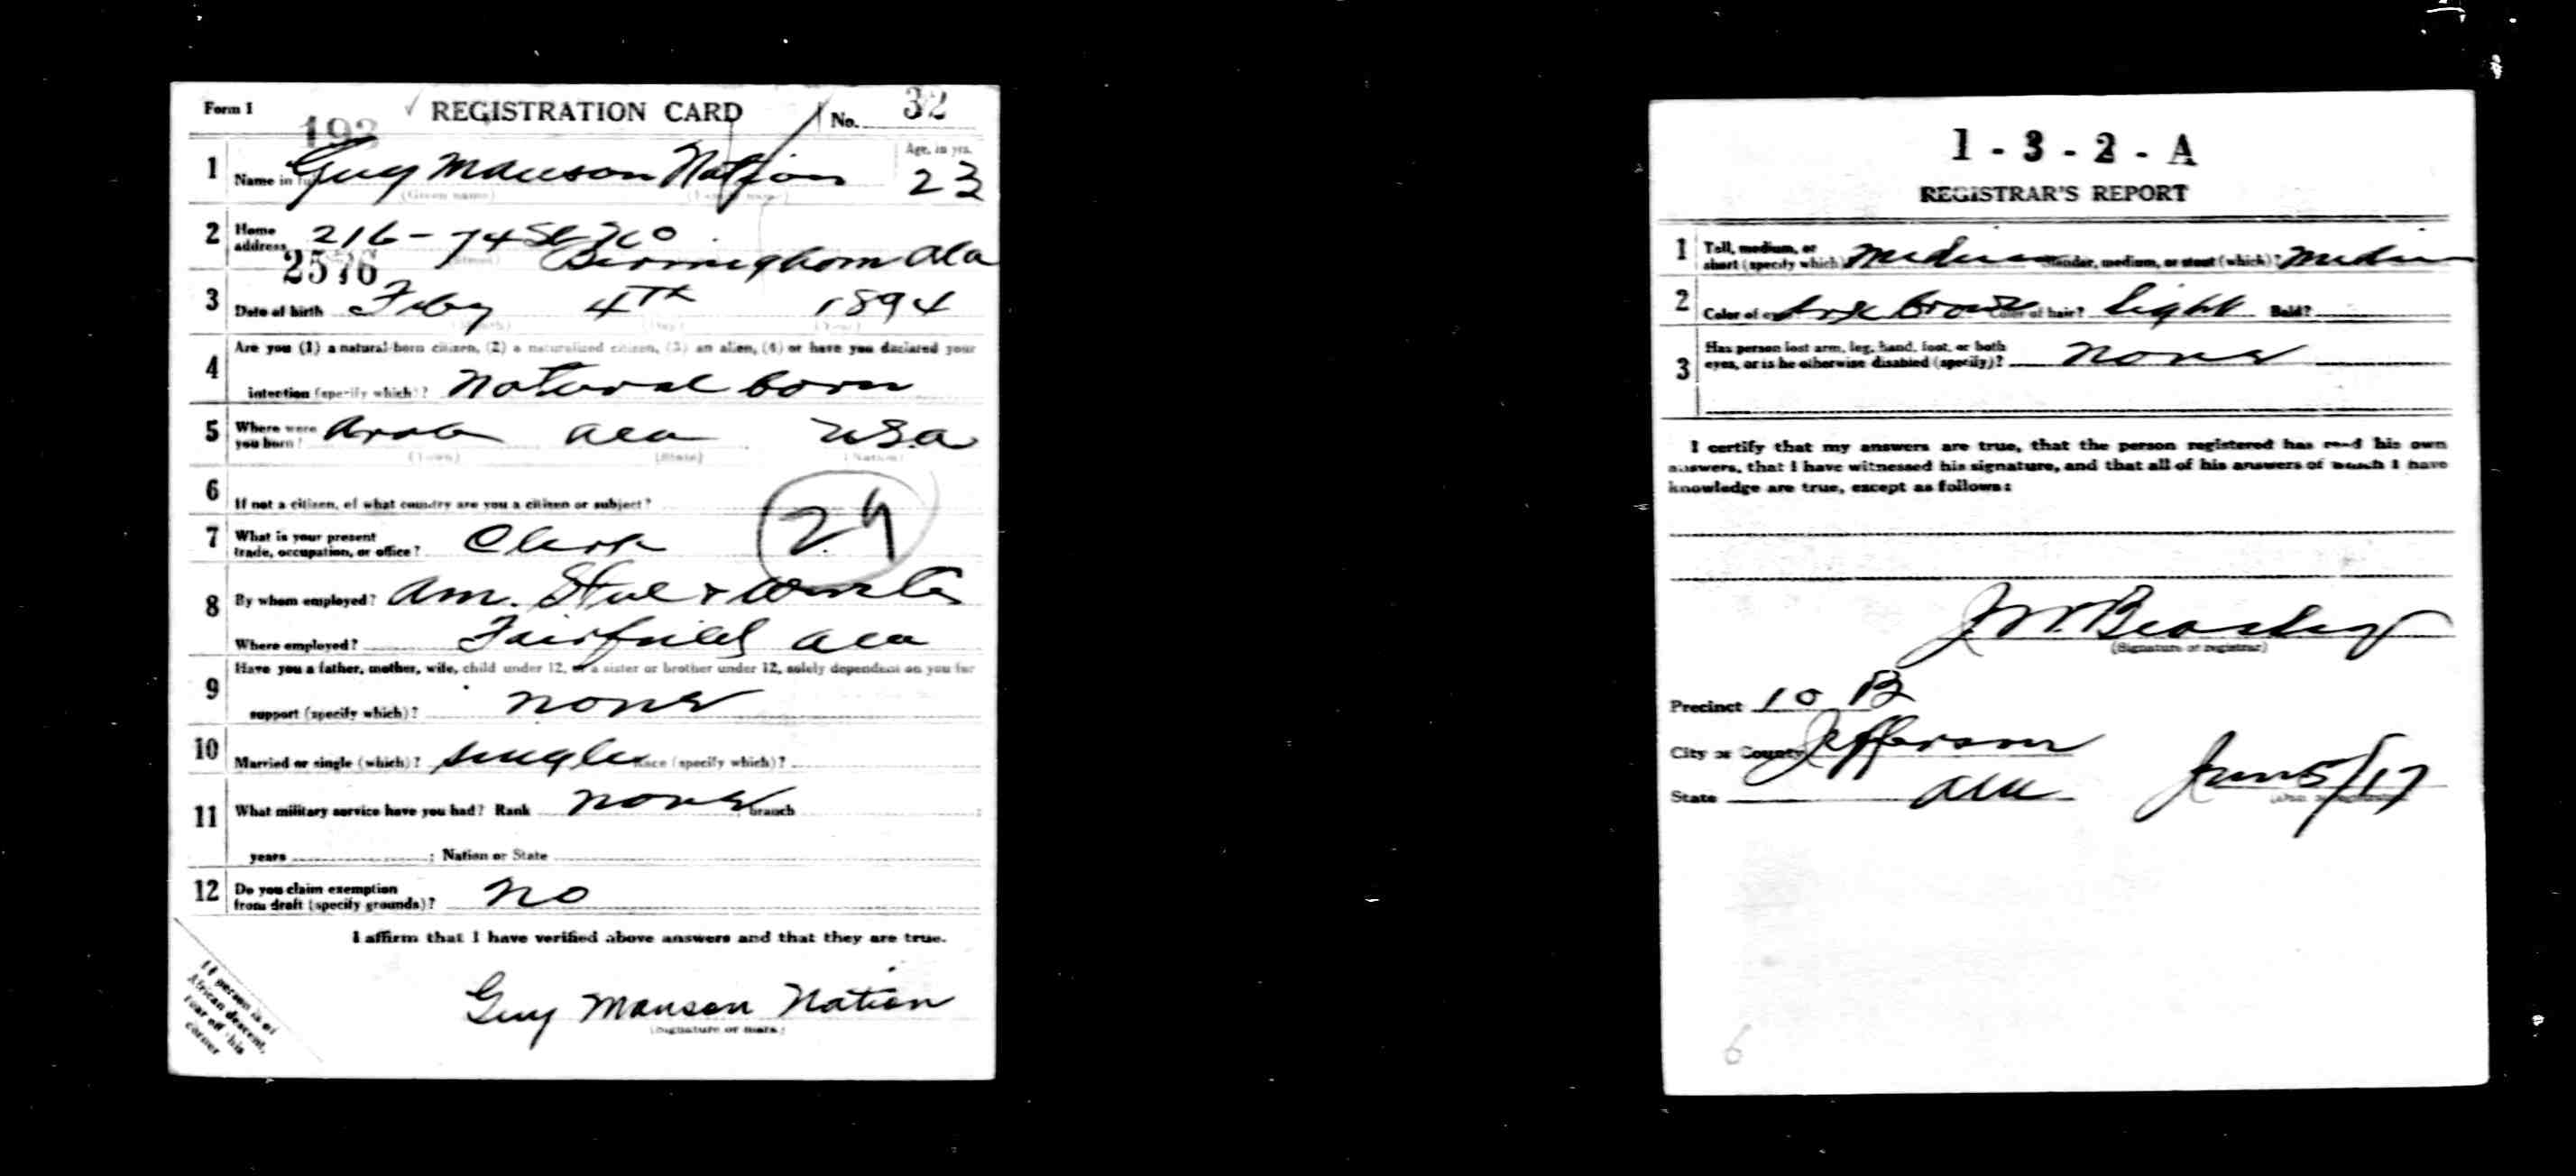 Form 1 REGISTRATION CARD No. 32
193
1 Name in full Guy Manson Nation Age, in yrs. 23
(Given name) (Family name)
2 Home address 216 - 74 St No Birmingham Ala
2576
3 Date of birth Feby 4th 1894
4 Are you (1) a natural-born citizen, (2) a naturalized citizen, (3) an alien, (4) or have you declared your
intention (specify which)? Natural born
5 Where were you born? Arab Ala USA
(Town) (State) (Nation)
6 If not a citizen, of what country are you a citizen or subject?
7 What is your present trade, occupation, or office? Clerk 24
8 By whom employed? Am. Steel & Wire Co
Where employed? Fairfield Ala
9 Have you a father, mother, wife, child under 12, or a sister or brother under 12, solely dependent on you for
support (specify which)? none
10 Married or single (which)? Single Race (specify which)?
11 What military service have you had? Rank none branch
years ; Nation or State
12 Do you claim exemption from draft (specify grounds)? no
I affirm that I have verified above answers and that they are true.
Guy Manson Nation
(Signature or mark)
If person is of
African descent,
tear off this
corner
1-3-2-A
REGISTRAR'S REPORT
1 Tall, medium, or short (specify which)? Medium Slender, medium, or stout (which)? Medium
2 Color of eyes? Brown Color of hair? Light Bald?
3 Has person lost arm, leg, hand, foot, or both
eyes, or is he otherwise disabled (specify)? none
I certify that my answers are true, that the person registered has read his own
answers, that I have witnessed his signature, and that all of his answers of which I have
knowledge are true, except as follows:
J.W. Beasley
(Signature of registrar)
Precinct 10 B
City or County Jefferson
State Ala June 5/17
(Date of registration)